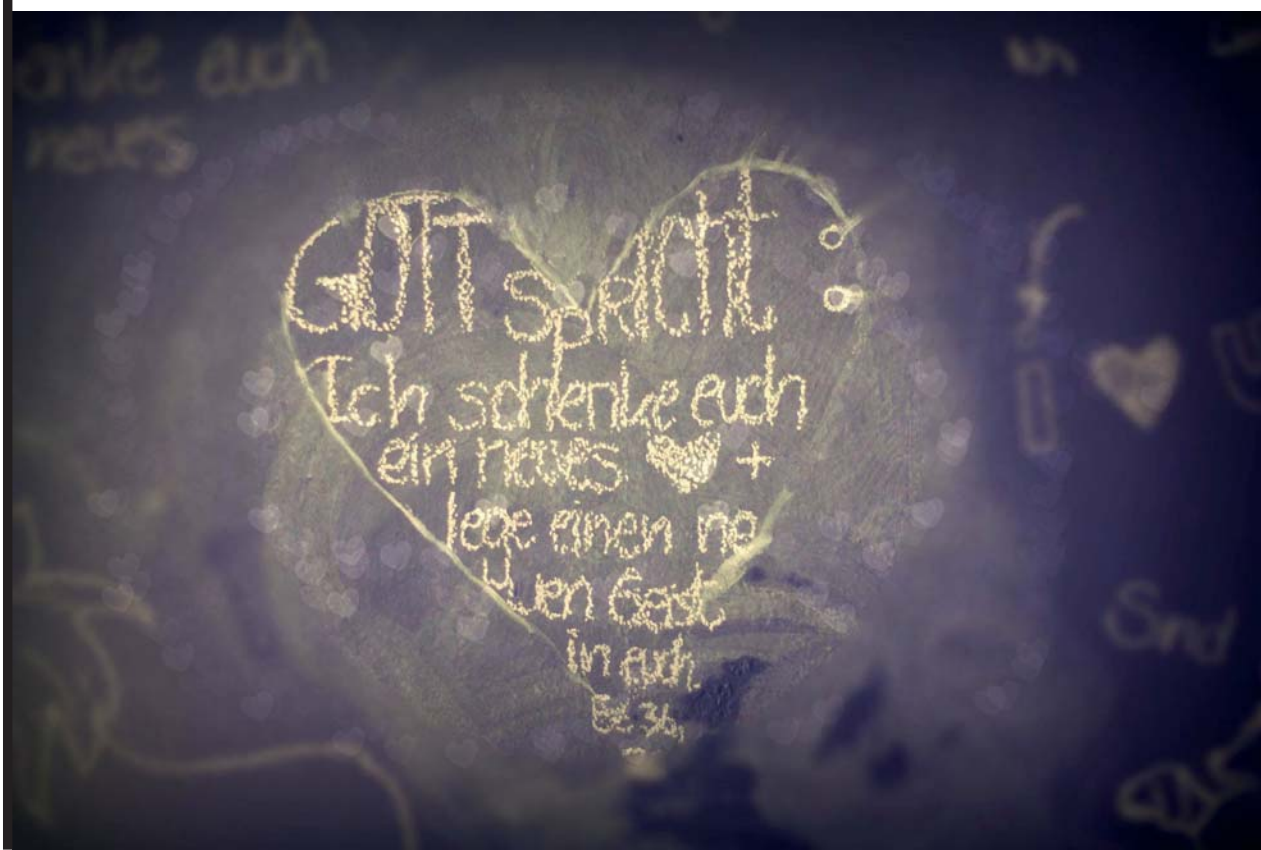 euch
neues
GOTT spricht:
Ich schenke euch
ein neues ♥ +
lege einen ne
uen Geist
in euch
Ez. 36,
Snd